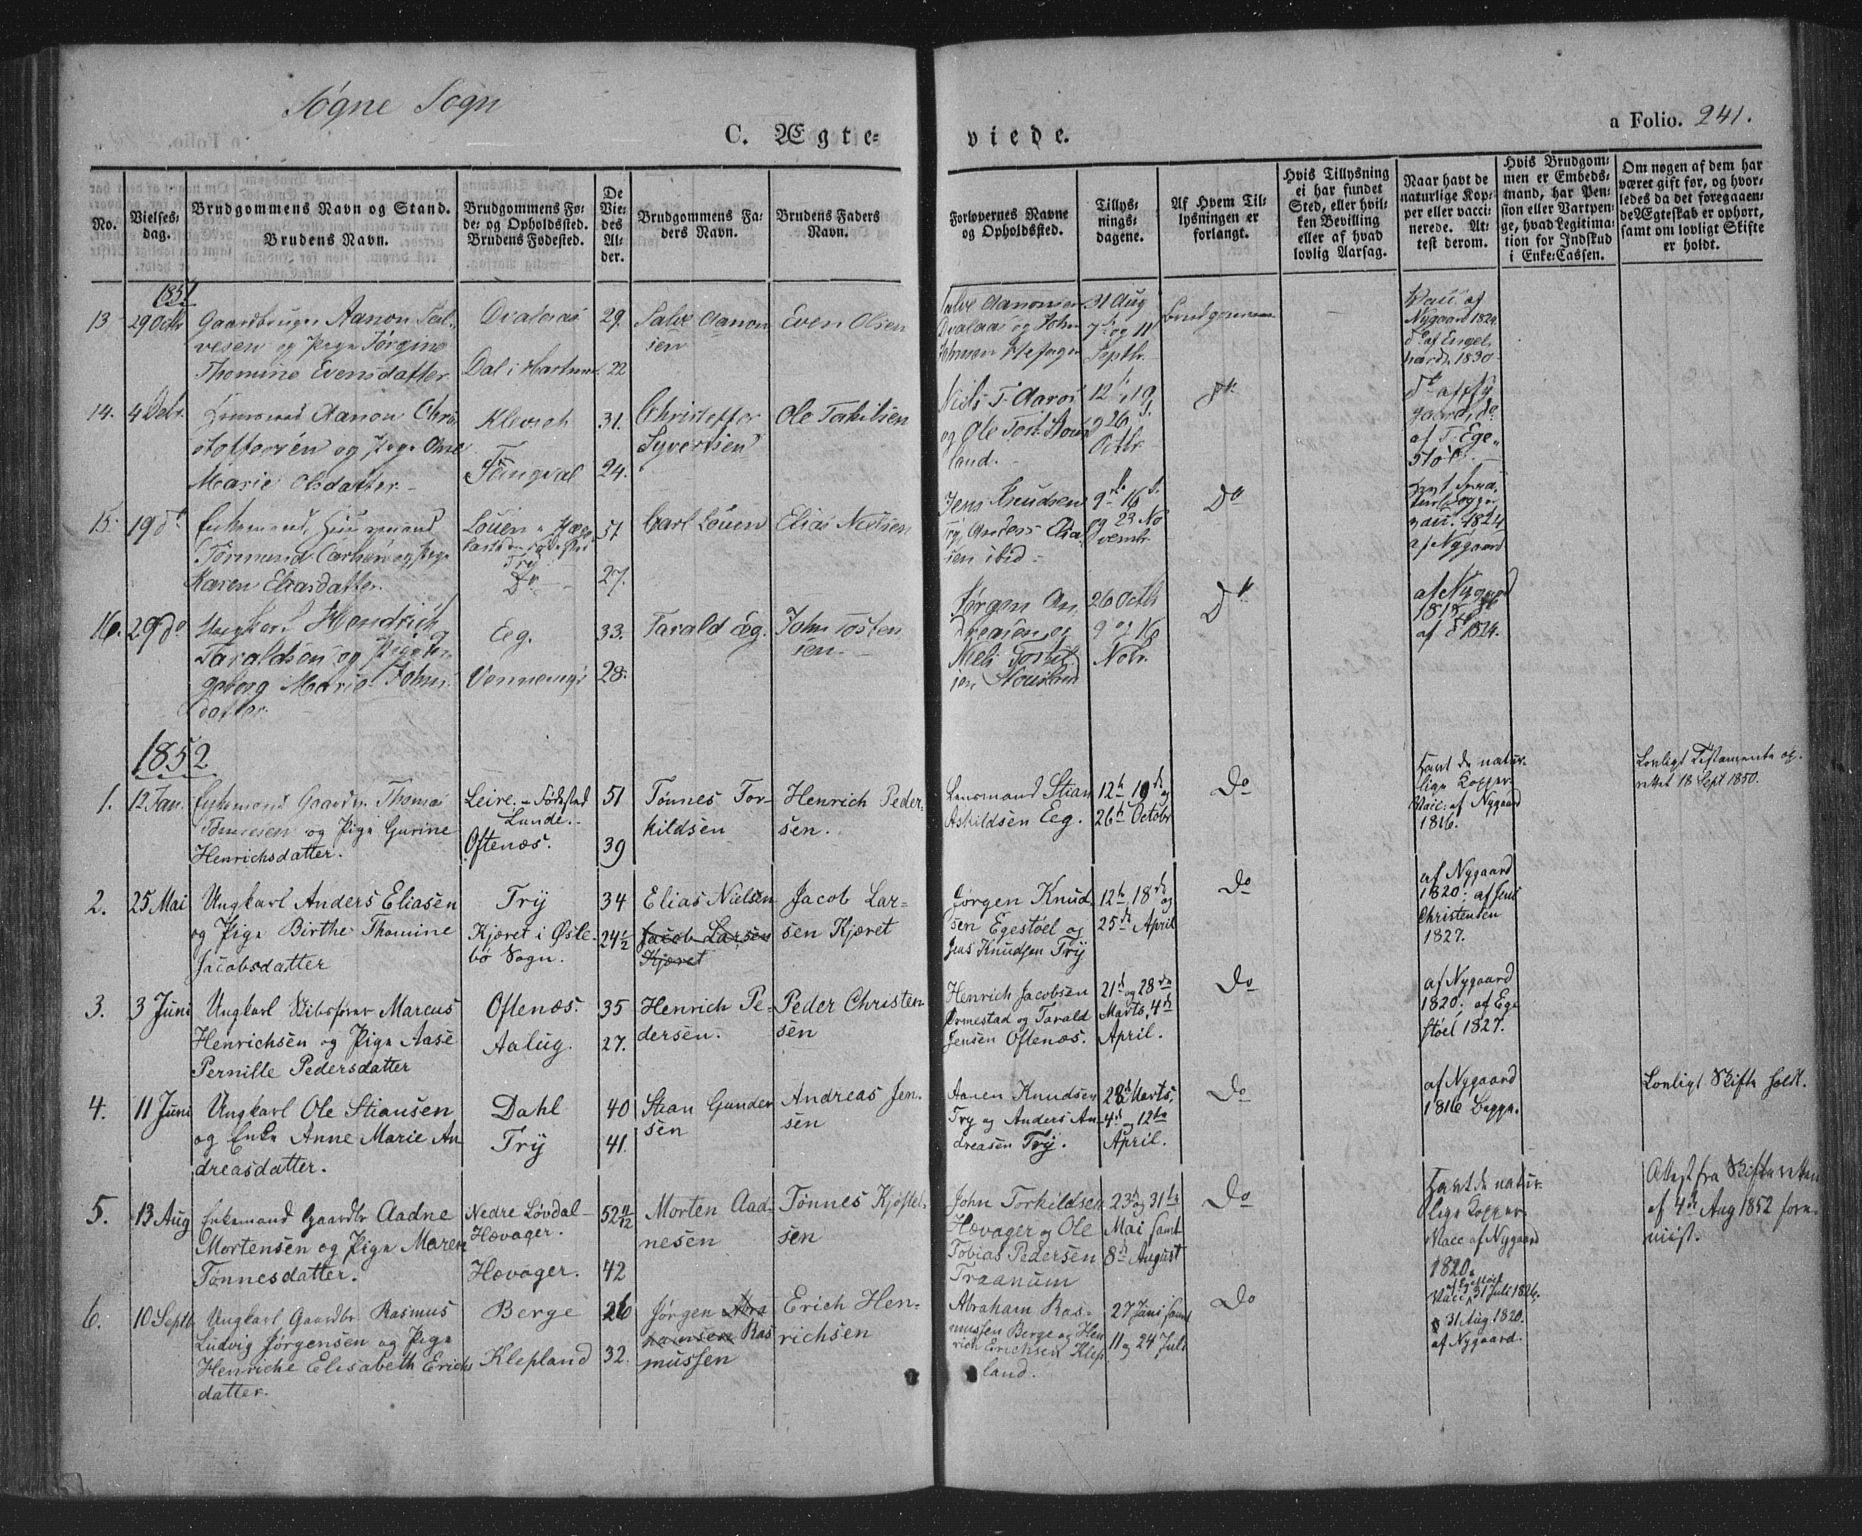 Søgne Sogn
C. Ægte- viede.
a Folio. 241.
No.
Vielses-
dag.
Brudgommens Navn og Stand.
Brudens Navn.
Brudgommens Fø-
de- og Opholdssted.
Brudens Fødested.
De
Vie-
des
Al-
der.
Brudgommens Fa-
ders Navn.
Brudens Faders
Navn.
Forlovernes Navne
og Opholdssted.
Tillys-
nings-
dagene.
Af Hvem Til-
lysningen er
forlangt.
Hvis Tillysning
ei har fundet
Sted, eller hvil-
ken Bevilling
eller af hvad
lovlig Aarsag.
Naar havt de
naturlige Kop-
per eller vacci-
nerede. At-
test derom.
Hvis Brudgom-
men er Embeds-
mand, har Pen-
sion eller Vartpen-
ge, hvad Legitima-
tion for Indskud
i Enke-Cassen.
Om nogen af dem har
været gift før, og hvor-
ledes da det foregaaen-
de Ægteskab er ophørt,
samt om lovligt Skifte
er holdt.
1851
13 29 Octbr Gaardbruger Aanon Sal-
vesen og Pige Jørgine
Thomine Evensdatter
Dal i Hartmark
29.
22
Salve Aanon
sen
Even Olsen
Salve Aanonsen
og John
31 Aug
7de og 14
Septbr.
Brudgommen
Vacc. af
Nygaard 1824
do af Engel
hardt 1830
14. 4 Debr. Aanon Chri
stoffersen og Pige Ane
Marie Olsdatter
Kleveh
Tingval
31.
24.
Christoffer
Syvertsen
Ole Torkilsen
Niels T. Aaros
og Ole Tork. Stous
land.
12, 19
og 26 d.
Octbr.
Do
do af Ny
gaard, do
af T. Ege-
støl
15. 19 do Enkemand,
Tormund Carlsen og Pige
Karen Eliasdatter.
Try
Do
51
27.
Carl Louen
Elias Nielsen
Jens Knudsen
Try, Anders Elia
sen ibid
9de 16 d.
og 23 No
vembr.
Do
vacc. 1824
af Nygaard
16. 29 do Ungkarl Hendrich
Taraldsen og Pige In
geborg Marie Johns
datter.
Eeg.
Vennevigs
33.
28.
Tarald Eeg.
John Tosten
sen
Jørgen An
dreasen og
Niels Torkil
sen Stousland
26 Octb
9 og 16
Nobr.
Do
af Nygaard
1818
af do 1824.
1852
1. 12 Jan. Enkemand Gaardbr Thomas
Tønnesen og Pige Gurine
Henrichsdatter.
Leire. - Fødested
Lunde.
Oftenæs.
51
39
Tønnes Tor-
kildsen
Henrich Peder-
sen.
Lensmand Stian
Askildsen Eeg.
12te, 19de og
26de Octobr
Do
Havt de natur-
lige Kopper.
Vacc: af Nygaard
1816.
Lovligt Testamente op-
rettet 18 Sept 1850.
2. 25 Mai Ungkarl Anders Eliasen
og Pige Birthe Thomine
Jacobsdatter
Try
Kjæret i Øsle-
bø Sogn.
34
24 1/2
Elias Nielsen
Jacob Larsen
Kjæret
Jacob Lar-
sen Kjæret
Jørgen Knud-
sen Egestøel og
Jens Knudsen Try
12te, 18de og
25de April
Do
af Nygaard
1820; af Jens
Christensen
1827.
3. 3 Juni Ungkarl Skibsfører Marcus
Henrichsen og Pige Aase
Pernille Pedersdatter
Oftenæs.
Aalug.
35
27.
Henrich Pe-
dersen.
Peder Christen
sen
Henrich Jacobsen
Ormestad og Tarald
Jensen Oftenæs.
21de og 28de
Marts, 4de
April.
Do
af Nygaard
1820; af Ege
støel 1827.
4. 11 Juni Ungkarl Ole Stiansen
og Enke Anne Marie An
dreasdatter.
Dahl
Try
40
41.
Stian Gunder
sen
Andreas Jen-
sen
Aanen Knudsen
Try og Anders An-
dreasen Try.
28de Marts,
4de og 12te
April.
Do
af Nygaard
1816 Begge.
Lovligt Skifte holdt.
5. 13 Aug Enkemand Gaardbr Aadne
Mortensen og Pige Maren
Tønnesdatter.
Nedre Løvdal-
Høvager.
Høvager.
52 11/12
42
Morten Aad-
nesen
Tønnes Kjøstel-
sen
John Torkildsen
Høvager og Ole
Tobias Pedersen
Traanum
23de og 31te
Mai samt
8de August
Do
Havt de natur-
lige Kopper.
Vacc af Nygaard
1820.
Attest fra Skifteretten
af 4de Aug 1852 frem-
vist.
6. 10 Septb Ungkarl Gaardbr Rasmus
Ludvig Jørgensen og Pige
Henriche Elisabeth Erichs
datter.
Berge
Klepland
26
32.
Jørgen Abra
hamsen Ras
mussen
Erich Hen-
richsen
Abraham Ras-
mussen Berge og Hen
rich Erichsen Klep
land.
27 Juni samt
11 og 24 Juli
Do
af Egestøel
Vacc 31 Juli 1826.
31 Aug. 1820.
af Nygaard.